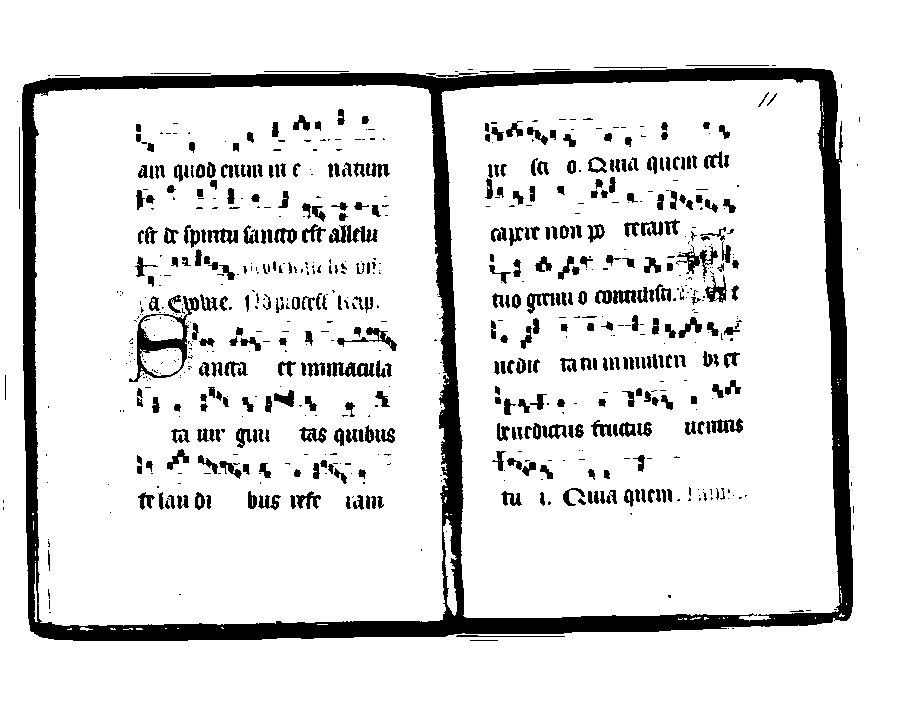 am quod enim in e natum
est de spiritu sancto est allelu
a. Evovae. Ad process Resp.
Sancta et immacula
ta uir gini tas quibus
te lau di bus refe ram
ne sci o. Quia quem celi
capere non po terant
tuo gremi o contulisti. et
nedic ta tu in mulieri bus et
benedictus fructus uentris
tu i. Quia quem.